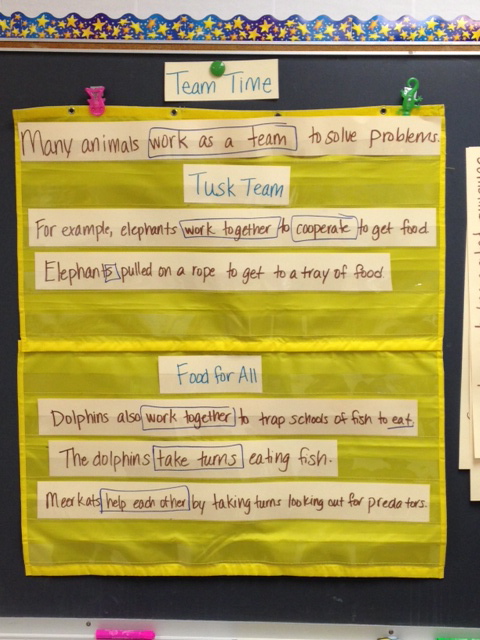 Team Time
Many animals work as a team to solve problems.
Tusk Team
For example, elephants work together to cooperate to get food
Elephants pulled on a rope to get to a tray of food
Food for All
Dolphins also work together to trap schools of fish to eat.
The dolphins take turns eating fish.
Meerkats help each other by taking turns looking out for predators.